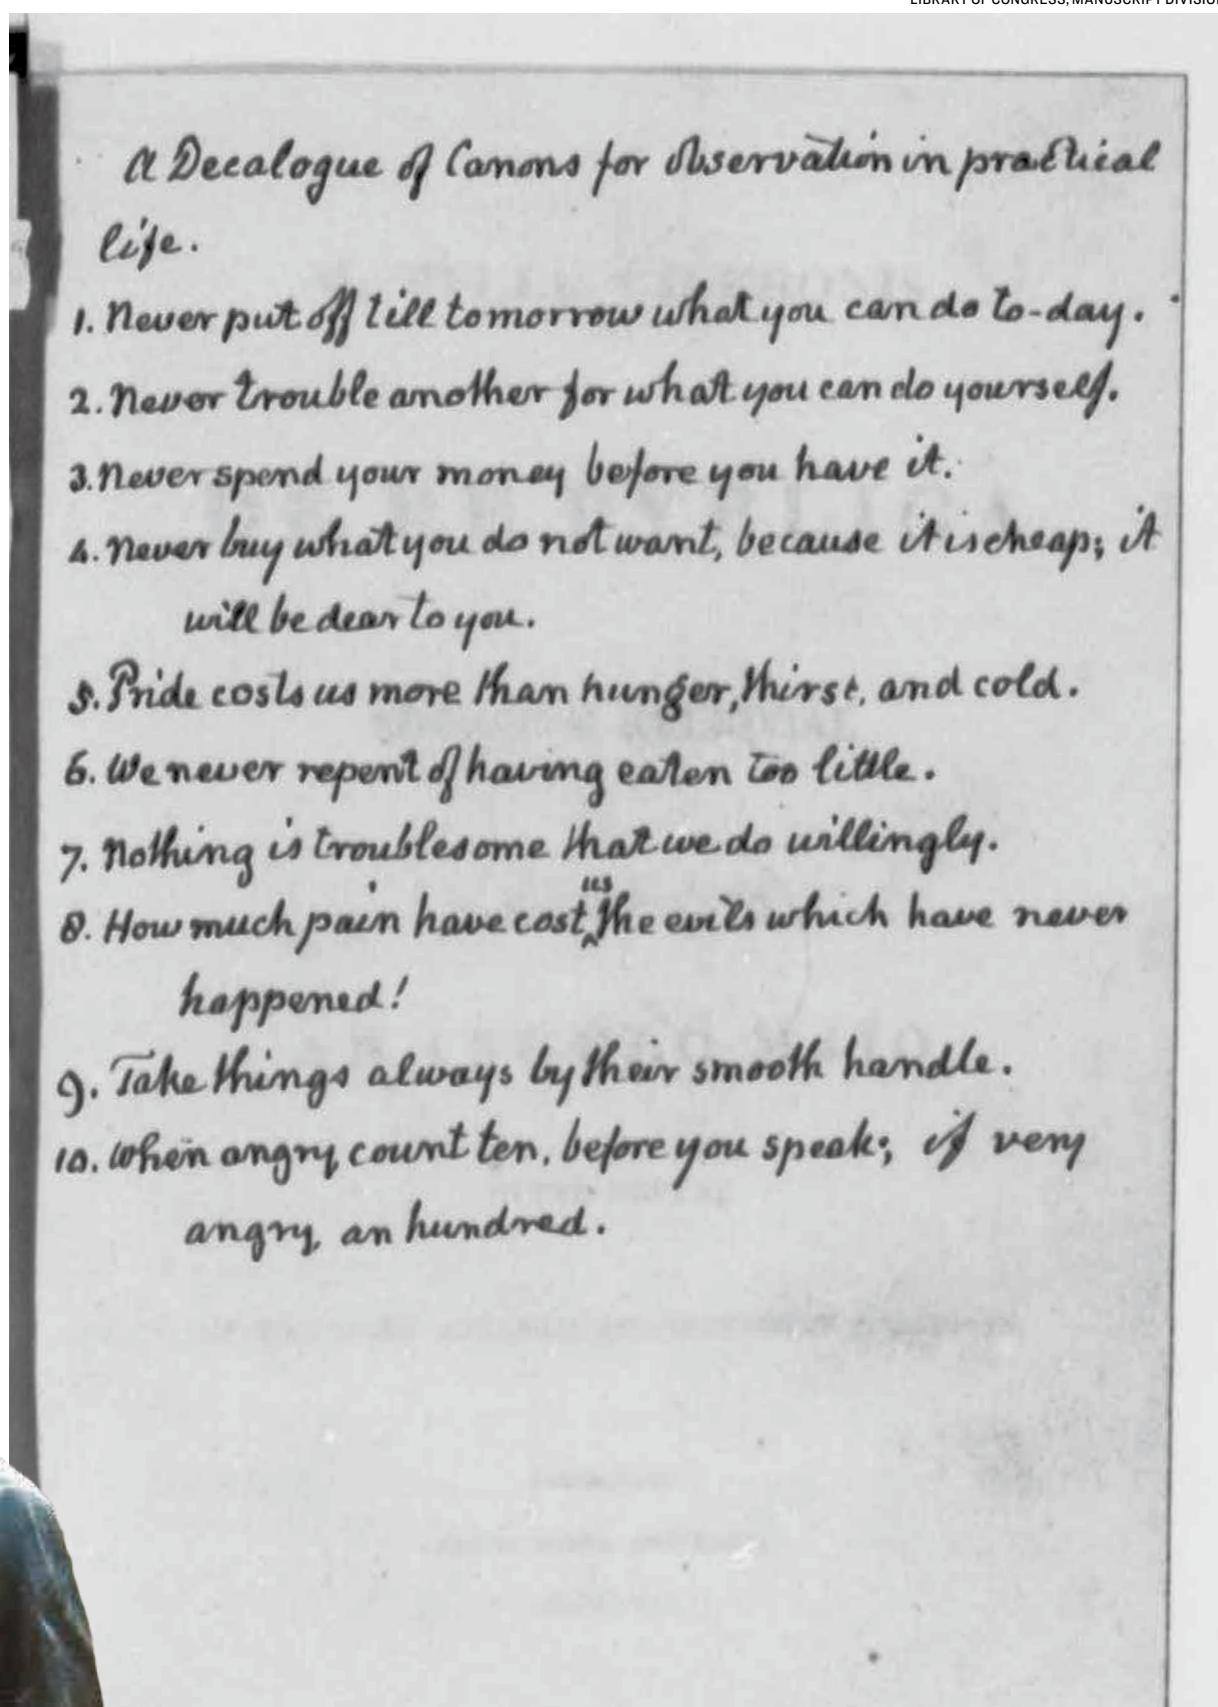 LIBRARY OF CONGRESS, MANUSCRIPT DIVISION
A Decalogue of Canons for observation in practical
life.
1. Never put off till tomorrow what you can do to-day.
2. Never trouble another for what you can do yourself.
3. Never spend your money before you have it.
4. Never buy what you do not want, because it is cheap; it
will be dear to you.
5. Pride costs us more than hunger, thirst, and cold.
6. We never repent of having eaten too little.
7. Nothing is troublesome that we do willingly.
8. How much pain have cost us the evils which have never
happened!
9. Take things always by their smooth handle.
10. When angry, count ten, before you speak; if very
angry, an hundred.